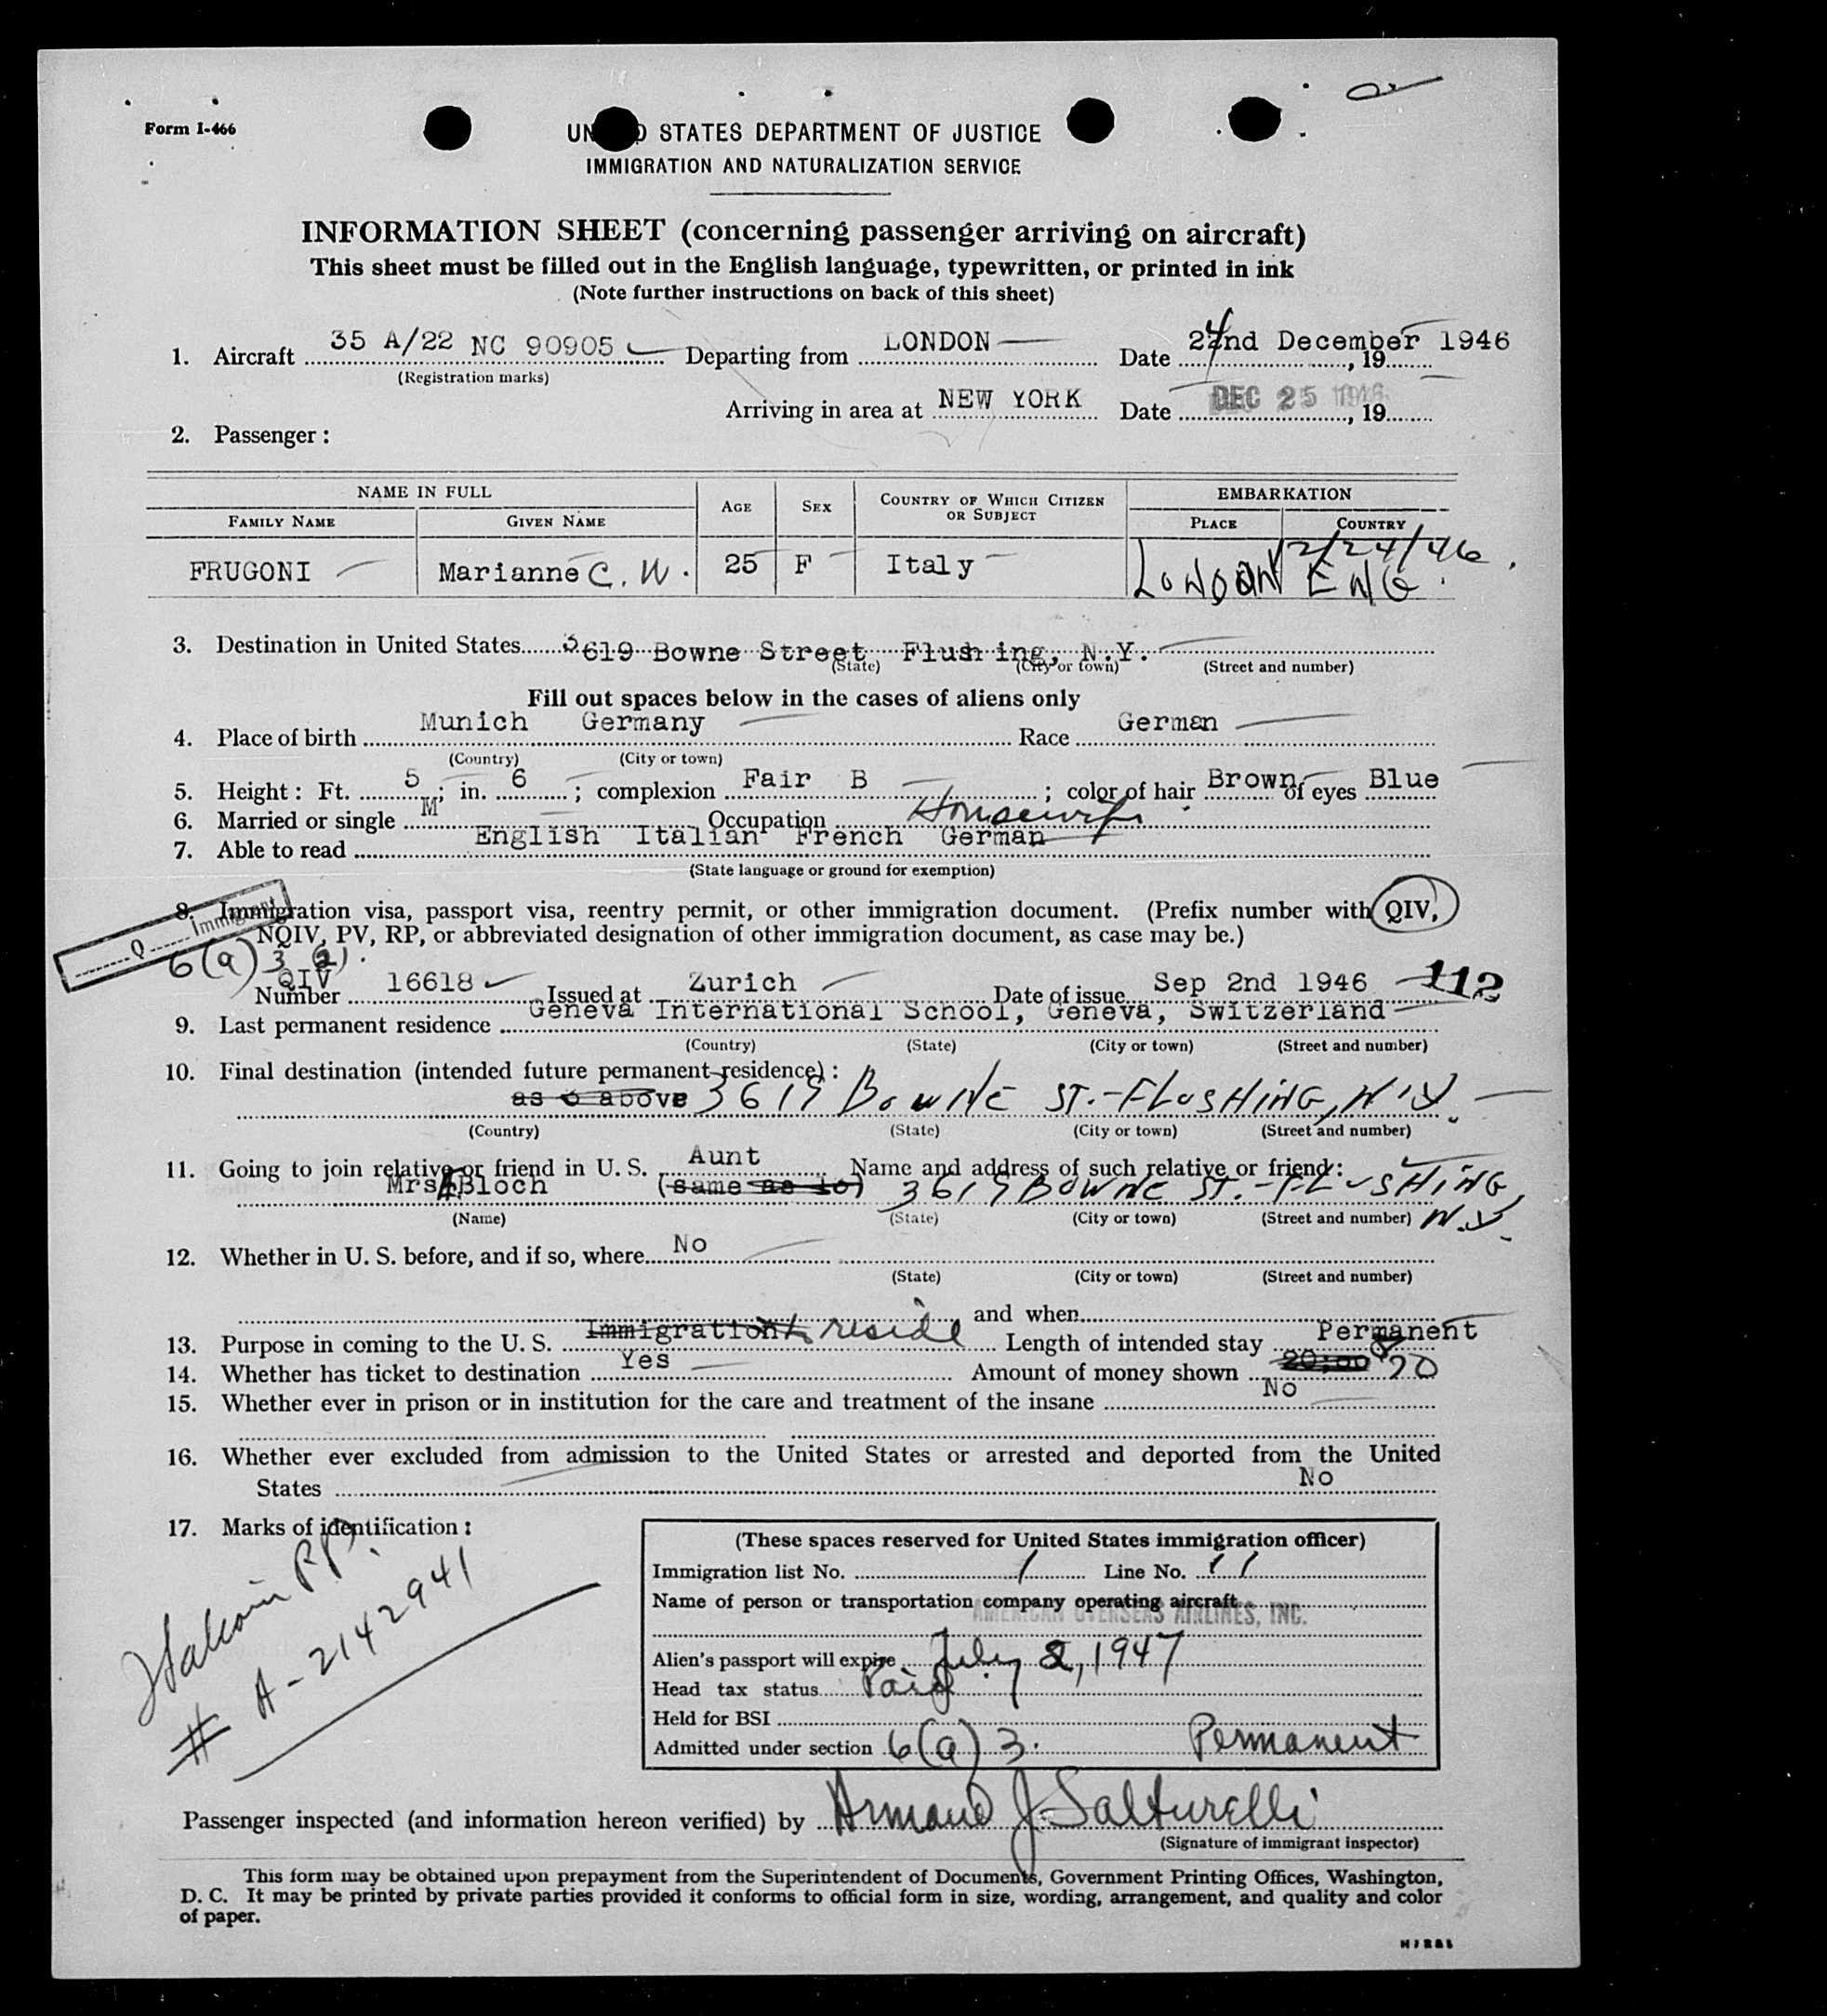 Form I-466
UN D STATES DEPARTMENT OF JUSTICE
IMMIGRATION AND NATURALIZATION SERVICE
INFORMATION SHEET (concerning passenger arriving on aircraft)
This sheet must be filled out in the English language, typewritten, or printed in ink
(Note further instructions on back of this sheet)
1. Aircraft 35 A/22 NC 90905 Departing from LONDON Date 24nd December 1946, 19
(Registration marks)
Arriving in area at NEW YORK Date DEC 25 1946, 19
2. Passenger:
NAME IN FULL AGE SEX COUNTRY OF WHICH CITIZEN OR SUBJECT EMBARKATION
FAMILY NAME GIVEN NAME PLACE COUNTRY
12/24/46.
FRUGONI Marianne C. W. 25 F Italy LONDON ENG.
3. Destination in United States 3619 Bowne Street Flushing, N.Y.
(State) (City or town) (Street and number)
Fill out spaces below in the cases of aliens only
4. Place of birth Munich Germany Race German
(Country) (City or town)
5. Height: Ft. 5; in. 6; complexion Fair B; color of hair Brown of eyes Blue
6. Married or single M Occupation Housewife
7. Able to read English Italian French German
(State language or ground for exemption)
Q Immigrant
8. Immigration visa, passport visa, reentry permit, or other immigration document. (Prefix number with QIV,
NQIV, PV, RP, or abbreviated designation of other immigration document, as case may be.)
6(a) 3
QIV
Number 16618 Issued at Zurich Date of issue Sep 2nd 1946 112
9. Last permanent residence Geneva International School, Geneva, Switzerland
(Country) (State) (City or town) (Street and number)
10. Final destination (intended future permanent residence):
as o above 3619 BOWNE ST.-FLUSHING, N.Y.
(Country) (State) (City or town) (Street and number)
11. Going to join relative or friend in U. S. Aunt Name and address of such relative or friend:
Mrs Bloch (same as 10) 3619 BOWNE ST.-FLUSHING, N.Y.
(Name) (State) (City or town) (Street and number)
12. Whether in U. S. before, and if so, where No
(State) (City or town) (Street and number)
and when
13. Purpose in coming to the U. S. Immigration to reside Length of intended stay Permanent
14. Whether has ticket to destination Yes Amount of money shown 20:00 20
15. Whether ever in prison or in institution for the care and treatment of the insane No
16. Whether ever excluded from admission to the United States or arrested and deported from the United
States No
17. Marks of identification:
Italian PP.
# A-2142941
(These spaces reserved for United States immigration officer)
Immigration list No. 1 Line No. 11
Name of person or transportation company operating aircraft
AMERICAN OVERSEAS AIRLINES, INC.
Alien's passport will expire July 2, 1947
Head tax status Paid
Held for BSI
Admitted under section 6(a) 3. Permanent
Passenger inspected (and information hereon verified) by Armand J. Salturelli
(Signature of immigrant inspector)
This form may be obtained upon prepayment from the Superintendent of Documents, Government Printing Offices, Washington,
D. C. It may be printed by private parties provided it conforms to official form in size, wording, arrangement, and quality and color
of paper.